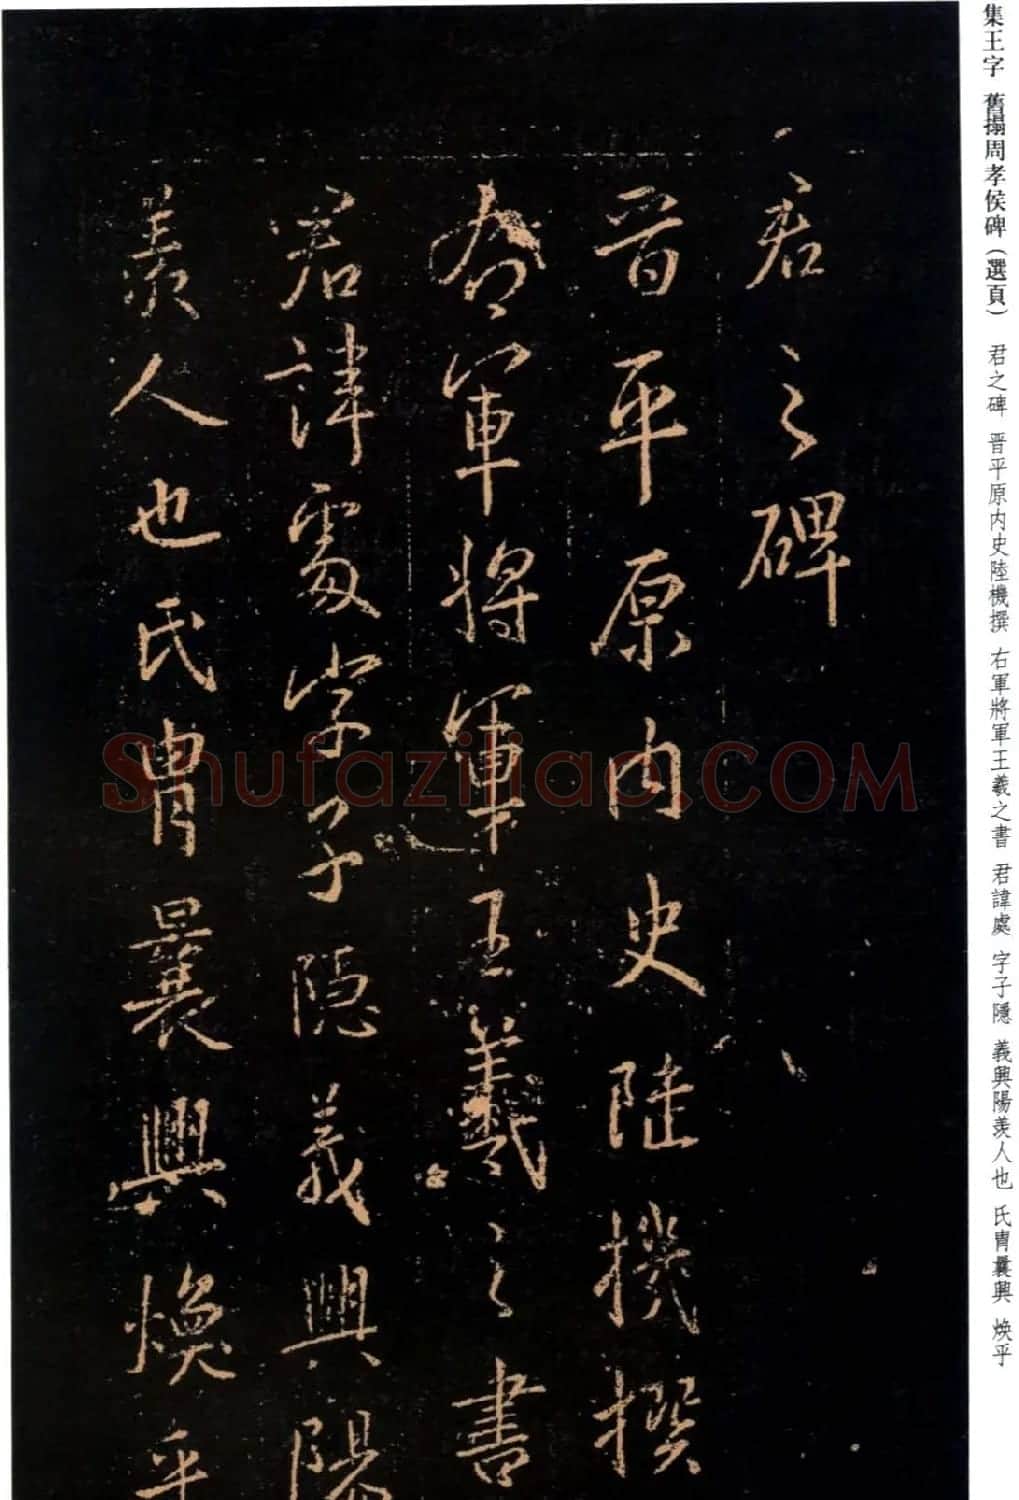 集王字 舊搨周孝侯碑（選頁） 君之碑 晋平原内史陸機撰 右軍將軍王羲之書 君諱處 字子隱 義興陽羡人也 氏胄曩興 焕乎
君之碑
晋平原内史陸機撰
右軍將軍王羲之書
君諱處字子隱義興陽
羡人也氏胄曩興焕乎
Shufaziliao.COM